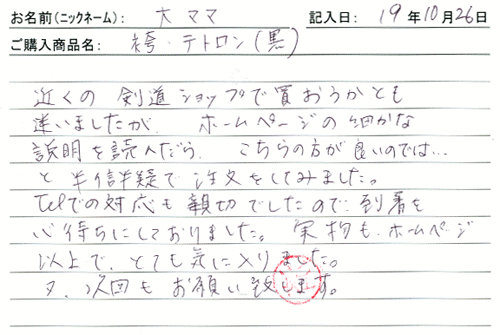 お名前(ニックネーム): 大ママ 記入日: 19年10月26日
ご購入商品名: 袴・テトロン(黒)
近くの 剣道ショップで買おうかとも
迷いましたが、ホームページの細かな
説明を読んだら、こちらの方が良いのでは…
と半信半疑で注文をしてみました。
Telでの対応も親切でしたので、到着を
心待ちにしておりました。実物も、ホームページ
以上で、とても気に入りました。
又、次回もお願い致します。